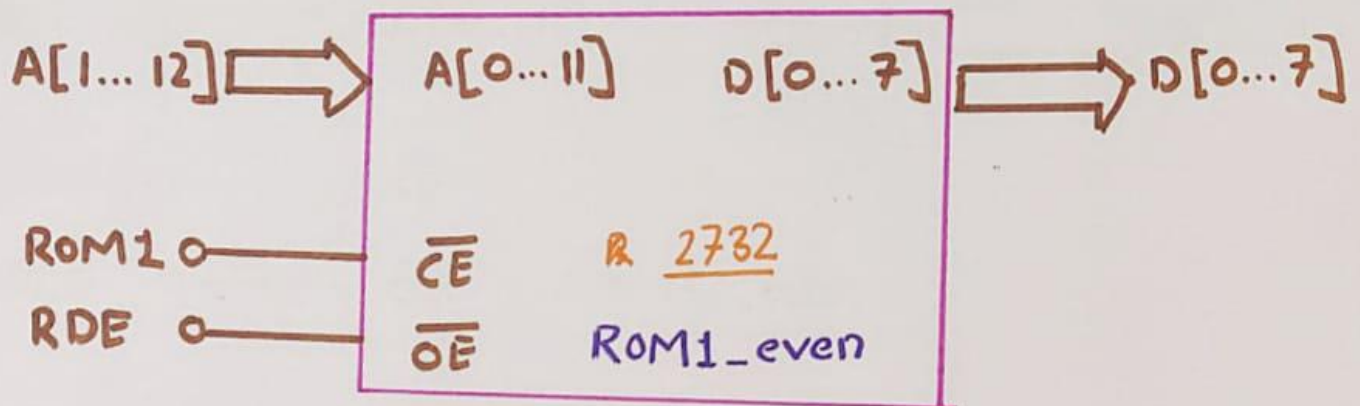 A[1... 12] A[0... 11] D[0... 7] D[0... 7]
ROM1 C̅E̅ 2732
RDE O̅E̅ ROM1_even